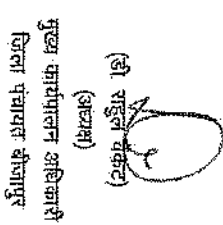 (डॉ. राहुल वेंकट)
(अध्यक्ष)
मुख्य कार्यपालन अधिकारी
जिला पंचायत बीजापुर